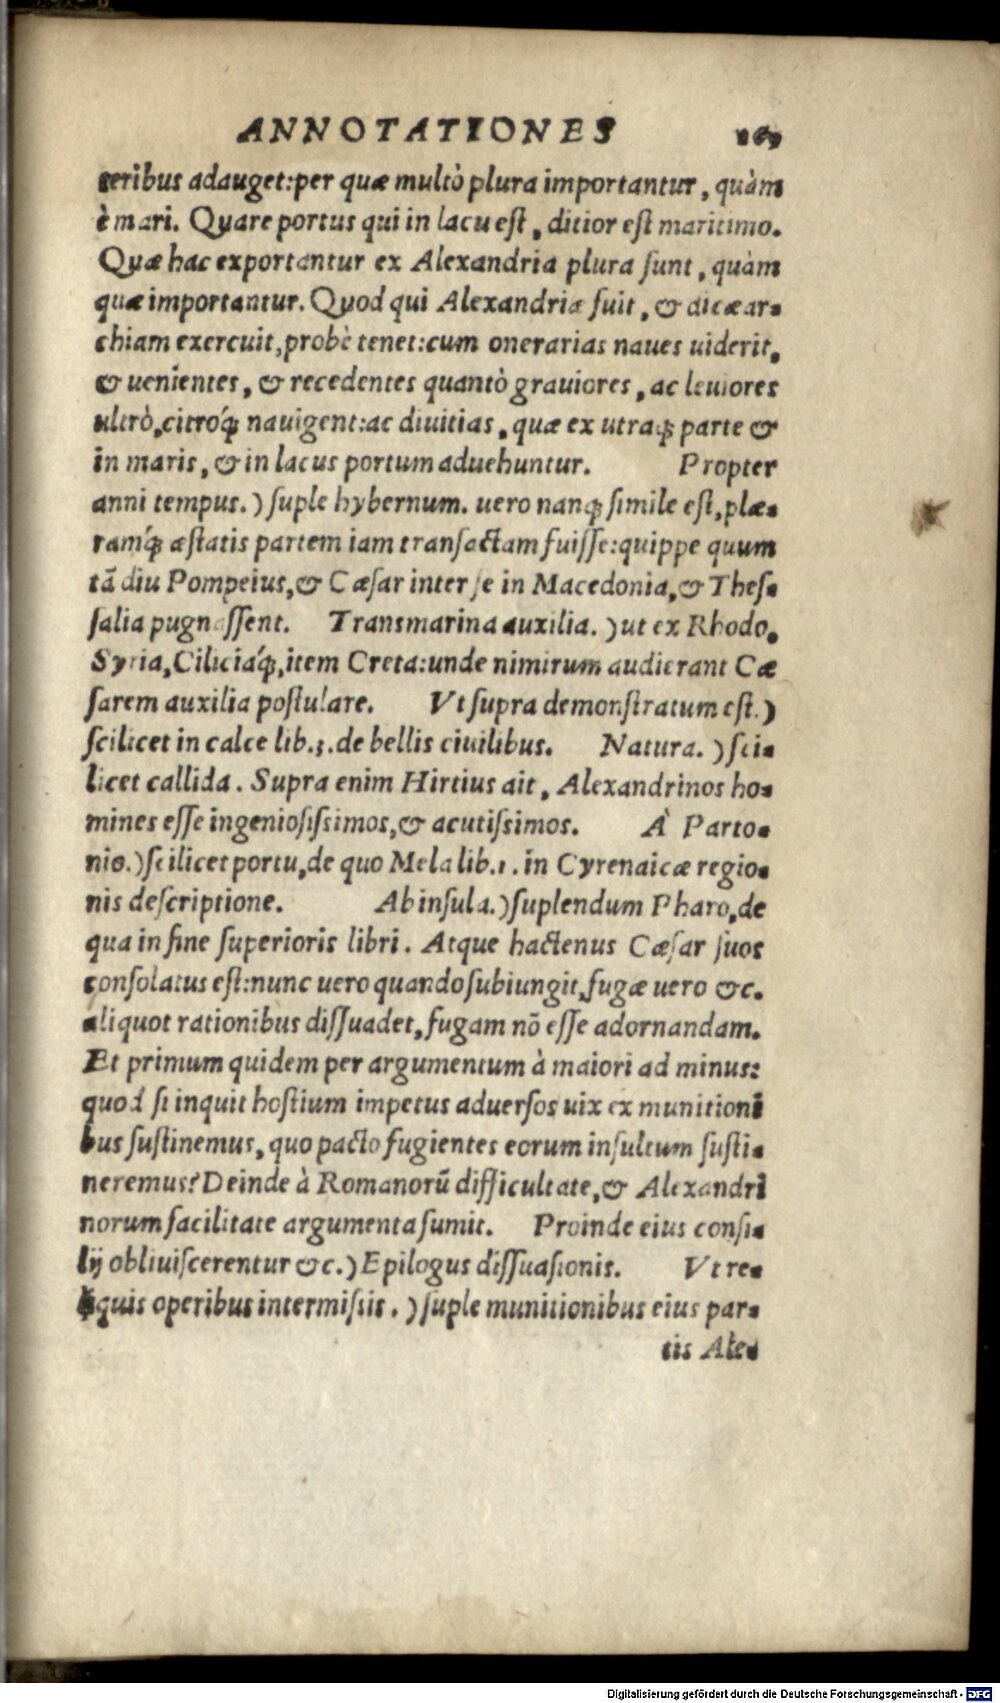 ANNOTATIONES
teribus adauget:per quæ multò plura importantur, quàm
è mari. Quare portus qui in lacu est, ditior est maritimo.
Quæ hac exportantur ex Alexandria plura sunt, quàm
quæ importantur. Quod qui Alexandriæ fuit, & dicæar-
chiam exercuit, probè tenet:cum onerarias naues uiderit,
& uenientes, & recedentes quantò grauiores, ac leuiores
ultrò, citróq́; nauigent:ac diuitias, quæ ex utraq; parte &
in maris, & in lacus portum aduehuntur. Propter
anni tempus.) suple hybernum. uero nanq; simile est, plæ-
ramq́; æstatis partem iam transactam fuisse:quippe quum
tā diu Pompeius, & Cæsar inter se in Macedonia, & Thes-
salia pugnassent. Transmarina auxilia.) ut ex Rhodo,
Syria, Ciliciáq́;, item Creta:unde nimirum audierant Cæ
sarem auxilia postulare. Vt supra demonstratum est.)
scilicet in calce lib.3. de bellis ciuilibus. Natura.) sci-
licet callida. Supra enim Hirtius ait, Alexandrinos ho-
mines esse ingeniosissimos, & acutissimos. À Parto-
nio.) scilicet portu, de quo Mela lib.1. in Cyrenaicæ regio-
nis descriptione. Ab insula.) suplendum Pharo, de
qua in fine superioris libri. Atque hactenus Cæsar suos
consolatus est:nunc uero quando subiungit, fugæ uero &c.
aliquot rationibus dissuadet, fugam nō esse adornandam.
Et primum quidem per argumentum à maiori ad minus:
quod si inquit hostium impetus aduersos uix ex munitioni
bus sustinemus, quo pacto fugientes eorum insultum susti-
neremus? Deinde à Romanorū difficultate, & Alexandri
norum facilitate argumenta sumit. Proinde eius consi-
lij obliuiscerentur &c.) Epilogus dissuasionis. Vt re-
liquis operibus intermissis.) suple munitionibus eius par-
tis Ale-
Digitalisierung gefördert durch die Deutsche Forschungsgemeinschaft - DFG